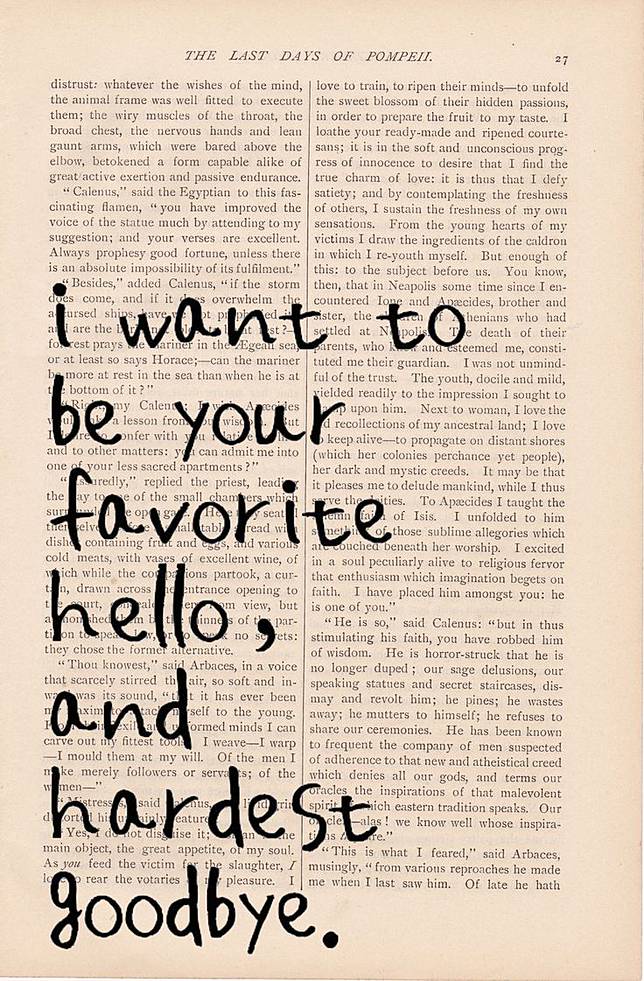 THE LAST DAYS OF POMPEII. 27
i want to
be your
favorite
hello,
and
hardest
goodbye.
distrust: whatever the wishes of the mind,
the animal frame was well fitted to execute
them; the wiry muscles of the throat, the
broad chest, the nervous hands and lean
gaunt arms, which were bared above the
elbow, betokened a form capable alike of
great active exertion and passive endurance.
“Calenus,” said the Egyptian to this fas-
cinating flamen, “you have improved the
voice of the statue much by attending to my
suggestion; and your verses are excellent.
Always prophesy good fortune, unless there
is an absolute impossibility of its fulfilment.”
“Besides,” added Calenus, “if the storm
does come, and if it does overwhelm the
are the
prays mariner in the Ægean sea,
or at least so says Horace;—can the mariner
be more at rest in the sea than when he is at
the bottom of it?”
my
a lesson from
confer with you
and to other matters: you can admit me into
one of your less sacred apartments?”
replied the priest, leading
the small chambers which
spread with
dishes containing fruit and eggs, and various
cold meats, with vases of excellent wine, of
which while the companions partook, a cur-
tain, drawn across the entrance opening to
from view, but
they chose the former alternative.
“Thou knowest,” said Arbaces, in a voice
that scarcely stirred the air, so soft and in-
ward was its sound, “that it has ever been
my maxim to attach myself to the young.
From unformed minds I can
carve out my fittest tools. I weave—I warp
—I mould them at my will. Of the men I
make merely followers or servants; of the
women—”
said
“Yes, I do not disguise it;
main object, the great appetite, of my soul.
As you feed the victim for the slaughter, I
love to rear the votaries of my pleasure. I
love to train, to ripen their minds—to unfold
the sweet blossom of their hidden passions,
in order to prepare the fruit to my taste. I
loathe your ready-made and ripened courte-
sans; it is in the soft and unconscious prog-
ress of innocence to desire that I find the
true charm of love: it is thus that I defy
satiety; and by contemplating the freshness
of others, I sustain the freshness of my own
sensations. From the young hearts of my
victims I draw the ingredients of the caldron
in which I re-youth myself. But enough of
this: to the subject before us. You know,
then, that in Neapolis some time since I en-
countered Ione and Apæcides, brother and
sister, the who had
settled at Neapolis. The death of their
parents, who knew and esteemed me, consti-
tuted me their guardian. I was not unmind-
ful of the trust. The youth, docile and mild,
yielded readily to the impression I sought to
upon him. Next to woman, I love the
old recollections of my ancestral land; I love
to keep alive—to propagate on distant shores
(which her colonies perchance yet people),
her dark and mystic creeds. It may be that
it pleases me to delude mankind, while I thus
serve the deities. To Apæcides I taught the
solemn faith of Isis. I unfolded to him
something of those sublime allegories which
are couched beneath her worship. I excited
in a soul peculiarly alive to religious fervor
that enthusiasm which imagination begets on
faith. I have placed him amongst you: he
is one of you.”
“He is so,” said Calenus: “but in thus
stimulating his faith, you have robbed him
of wisdom. He is horror-struck that he is
no longer duped; our sage delusions, our
speaking statues and secret staircases, dis-
may and revolt him; he pines; he wastes
away; he mutters to himself; he refuses to
share our ceremonies. He has been known
to frequent the company of men suspected
of adherence to that new and atheistical creed
which denies all our gods, and terms our
oracles the inspirations of that malevolent
spirit of which eastern tradition speaks. Our
oracles—alas! we know well whose inspira-
tions they are.”
“This is what I feared,” said Arbaces,
musingly, “from various reproaches he made
me when I last saw him. Of late he hath